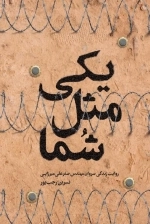 یکی
مثل
شما
روایت زندگی سردار مهندس صفرعلی میرزایی
نسرین رجب‌پور